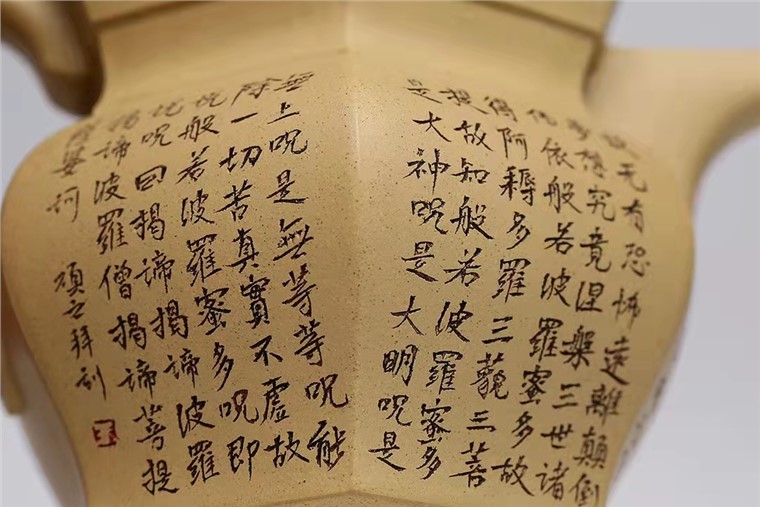 故无有恐怖遠離顛倒
夢想究竟涅槃三世諸
佛依般若波羅蜜多故
得阿耨多羅三藐三菩
提故知般若波羅蜜多
是大神呪是大明呪是
無上呪是無等等呪能
除一切苦真實不虛故
說般若波羅蜜多呪即
說呪曰揭諦揭諦波羅
揭諦波羅僧揭諦菩提
薩婆訶
拜刻